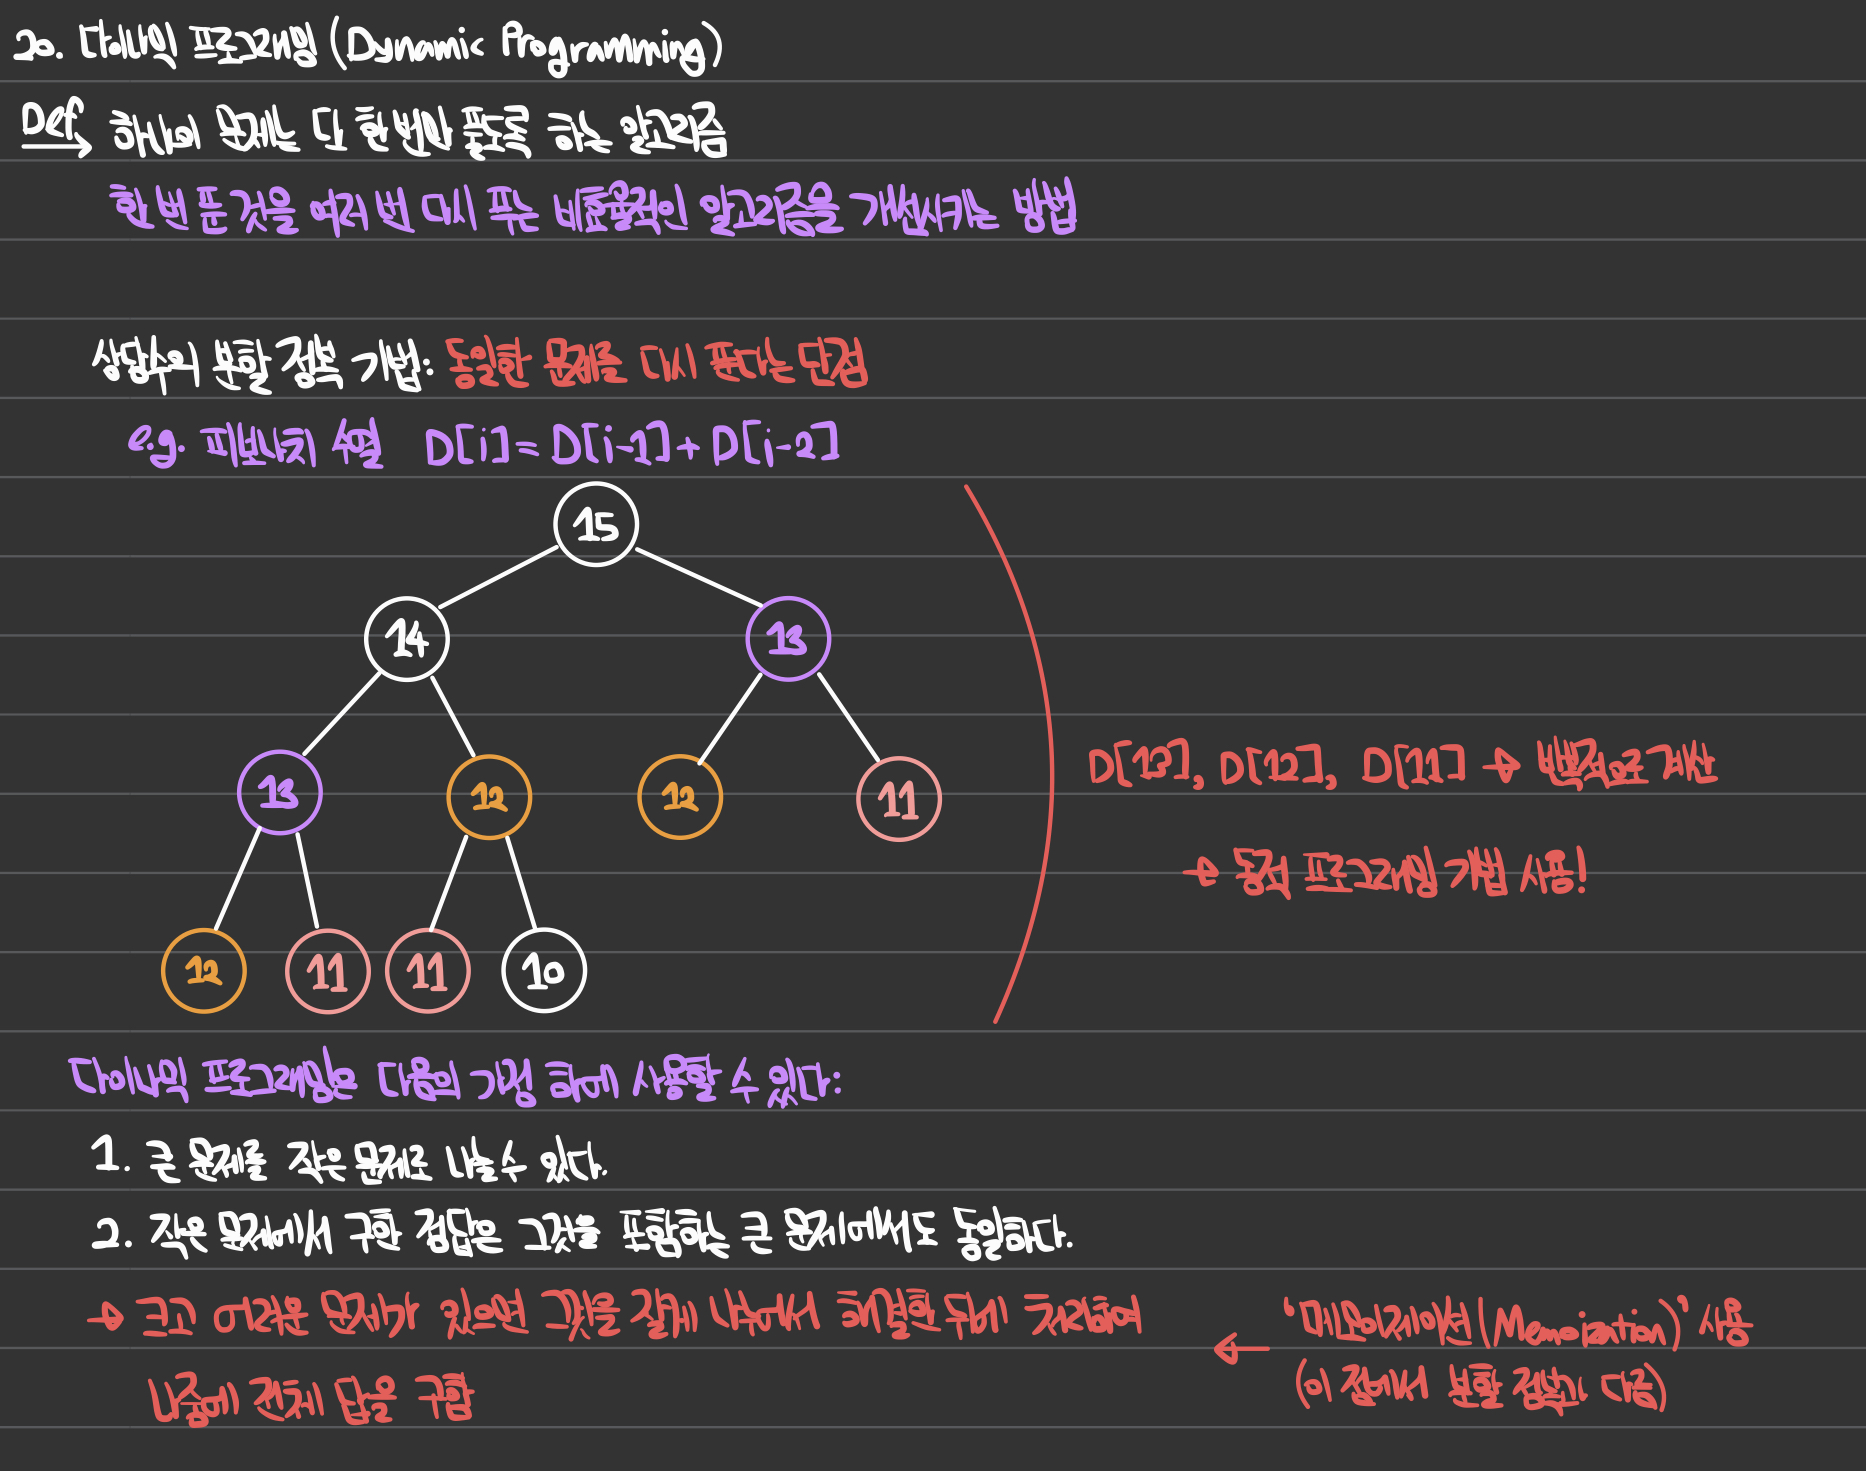 20. 다이나믹 프로그래밍 (Dynamic Programming)
Def → 하나의 문제는 단 한 번만 풀도록 하는 알고리즘
한 번 푼 것을 여러 번 다시 푸는 비효율적인 알고리즘을 개선시키는 방법
상당수의 분할 정복 기법: 동일한 문제를 다시 푼다는 단점
e.g. 피보나치 수열 D[i] = D[i-1] + D[i-2]
15
14 13
13 12 12 11
D[13], D[12], D[11] → 반복적으로 계산
→ 동적 프로그래밍 기법 사용!
12 11 11 10
다이나믹 프로그래밍은 다음의 가정 하에 사용할 수 있다:
1. 큰 문제를 작은 문제로 나눌 수 있다.
2. 작은 문제에서 구한 정답은 그것을 포함하는 큰 문제에서도 동일하다.
→ 크고 어려운 문제가 있으면 그것을 잘게 나누어서 해결한 뒤에 처리하여
나중에 전체 답을 구함
← '메모이제이션(Memoization)' 사용
(이 점에서 분할 정복과 다름)